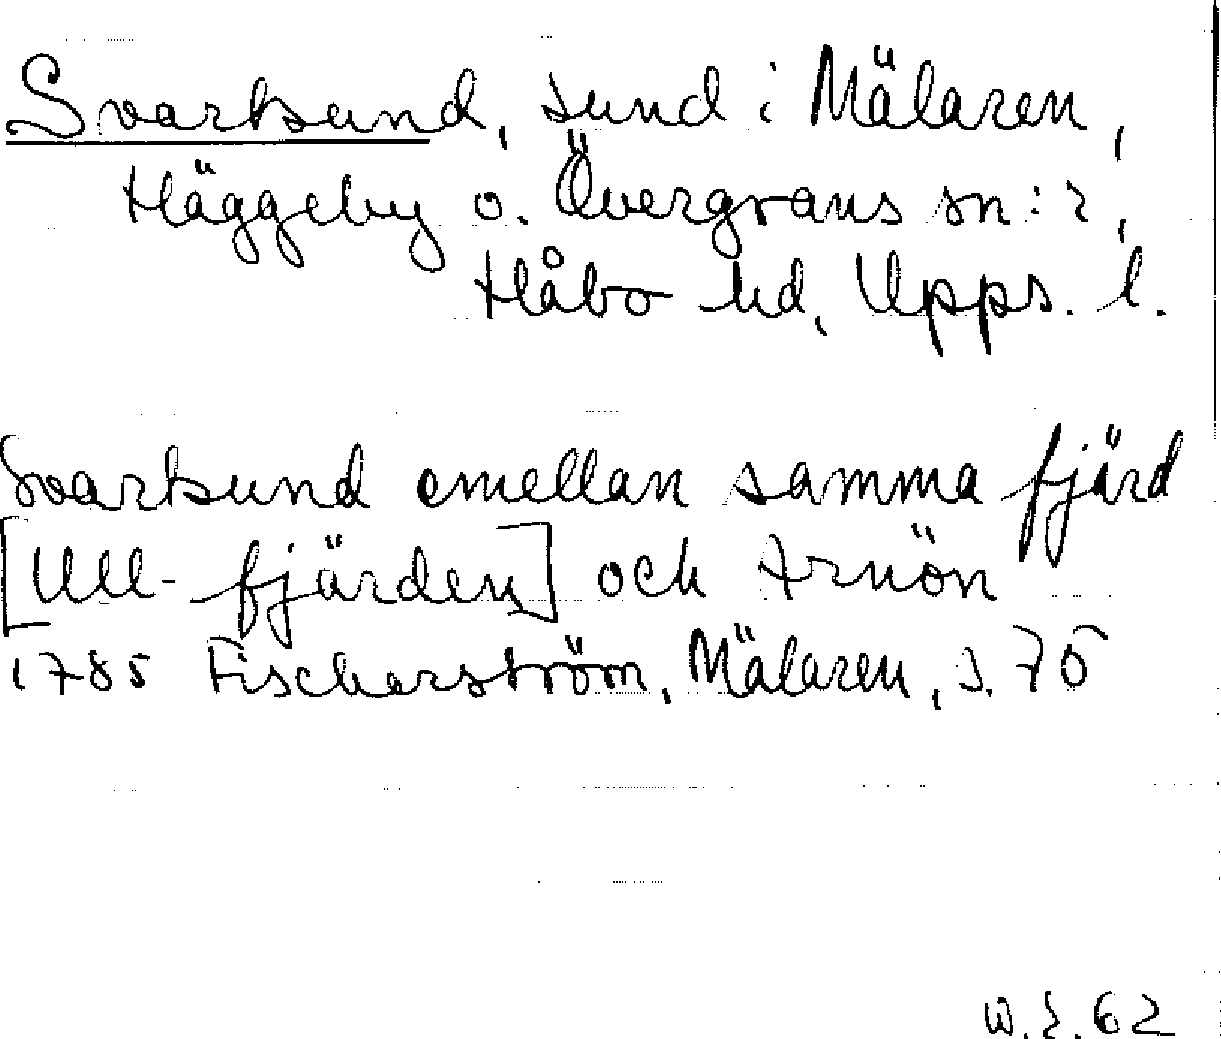 Svartsund, sund i Mälaren,
Häggeby o. Övergrans sn:r,
Håbo hd, Upps. l.
Svartsund emellan samma fjärd
[Ull-fjärden] och Arnön
1785 Fischerström, Mälaren, s. 75
62